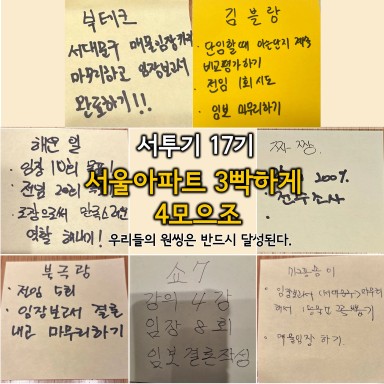 북테크
서대문구 매물임장까지
마무리하고 임장보고서
완료하기!!
김블랑
· 단임할때 아는단지
비교평가하기
· 전임 1회 시도
· 임보 마무리하기
해운열
· 임장 10회 목표!
· 전념 20회 목표
· 조장으로써 만족스러운
역할 해내기!
짜짱.
200%
서투기 17기
서울아파트 3빡하게
4모으조
우리들의 원씽은 반드시 달성된다.
북극랑
· 전임 5회
· 임장보고서 결론
내고 마무리하기
쇼7
강의 4강
임장 8회
임보 결론작성
· 임장보고서 (서대문구) 마무리
해서 1등뽑기
· 매물임장 하기.